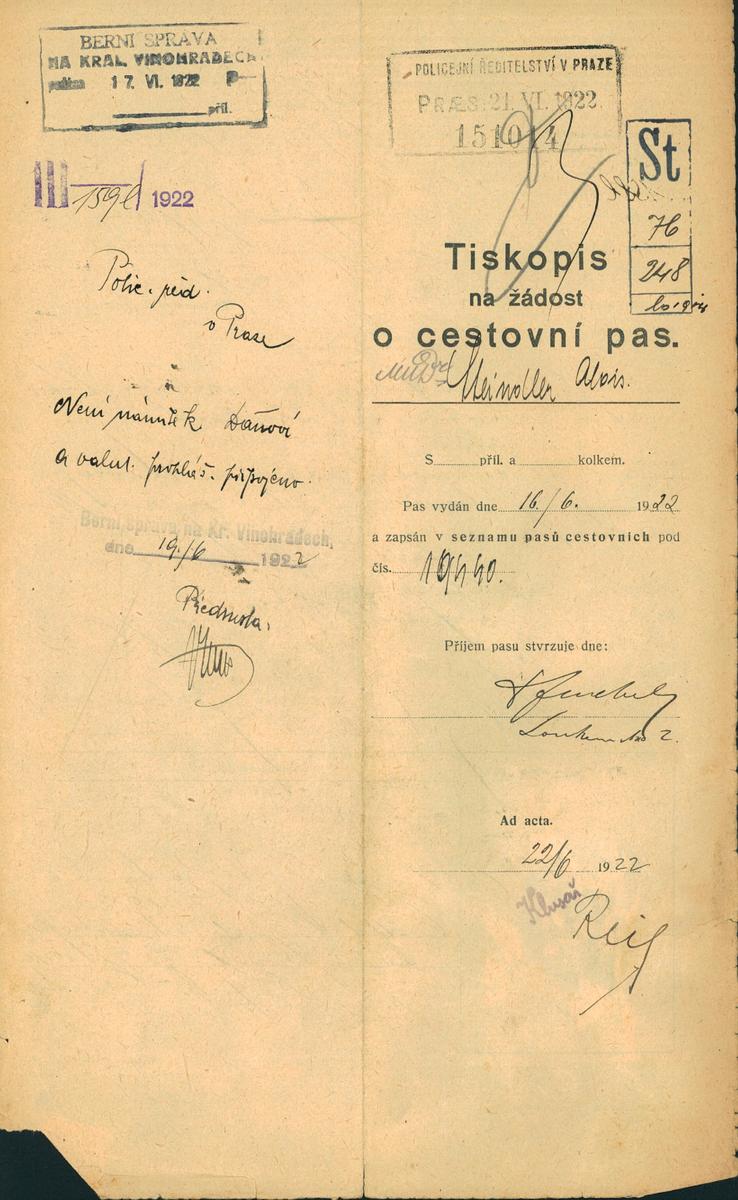 BERNÍ SPRÁVA
NA KRÁL. VINOHRADECH
1 7. VI. 1922
příl.
III 1922
Polic. řed.
v Praze
Není námitek Daňové
a valut. prohláš. připojeno.
Berní správa na Kr. Vinohradech,
dne 19./6 1922
Přednosta:
POLICEJNÍ ŘEDITELSTVÍ V PRAZE
PRÆS. 21. VI. 1922
151014
St
76
248
Tiskopis
na žádost
o cestovní pas.
MUDr Steindler Alois.
S příl. a kolkem.
Pas vydán dne 16./6. 1922
a zapsán v seznamu pasů cestovních pod
čís. 19440.
Příjem pasu stvrzuje dne:
Ad acta.
22/6 1922